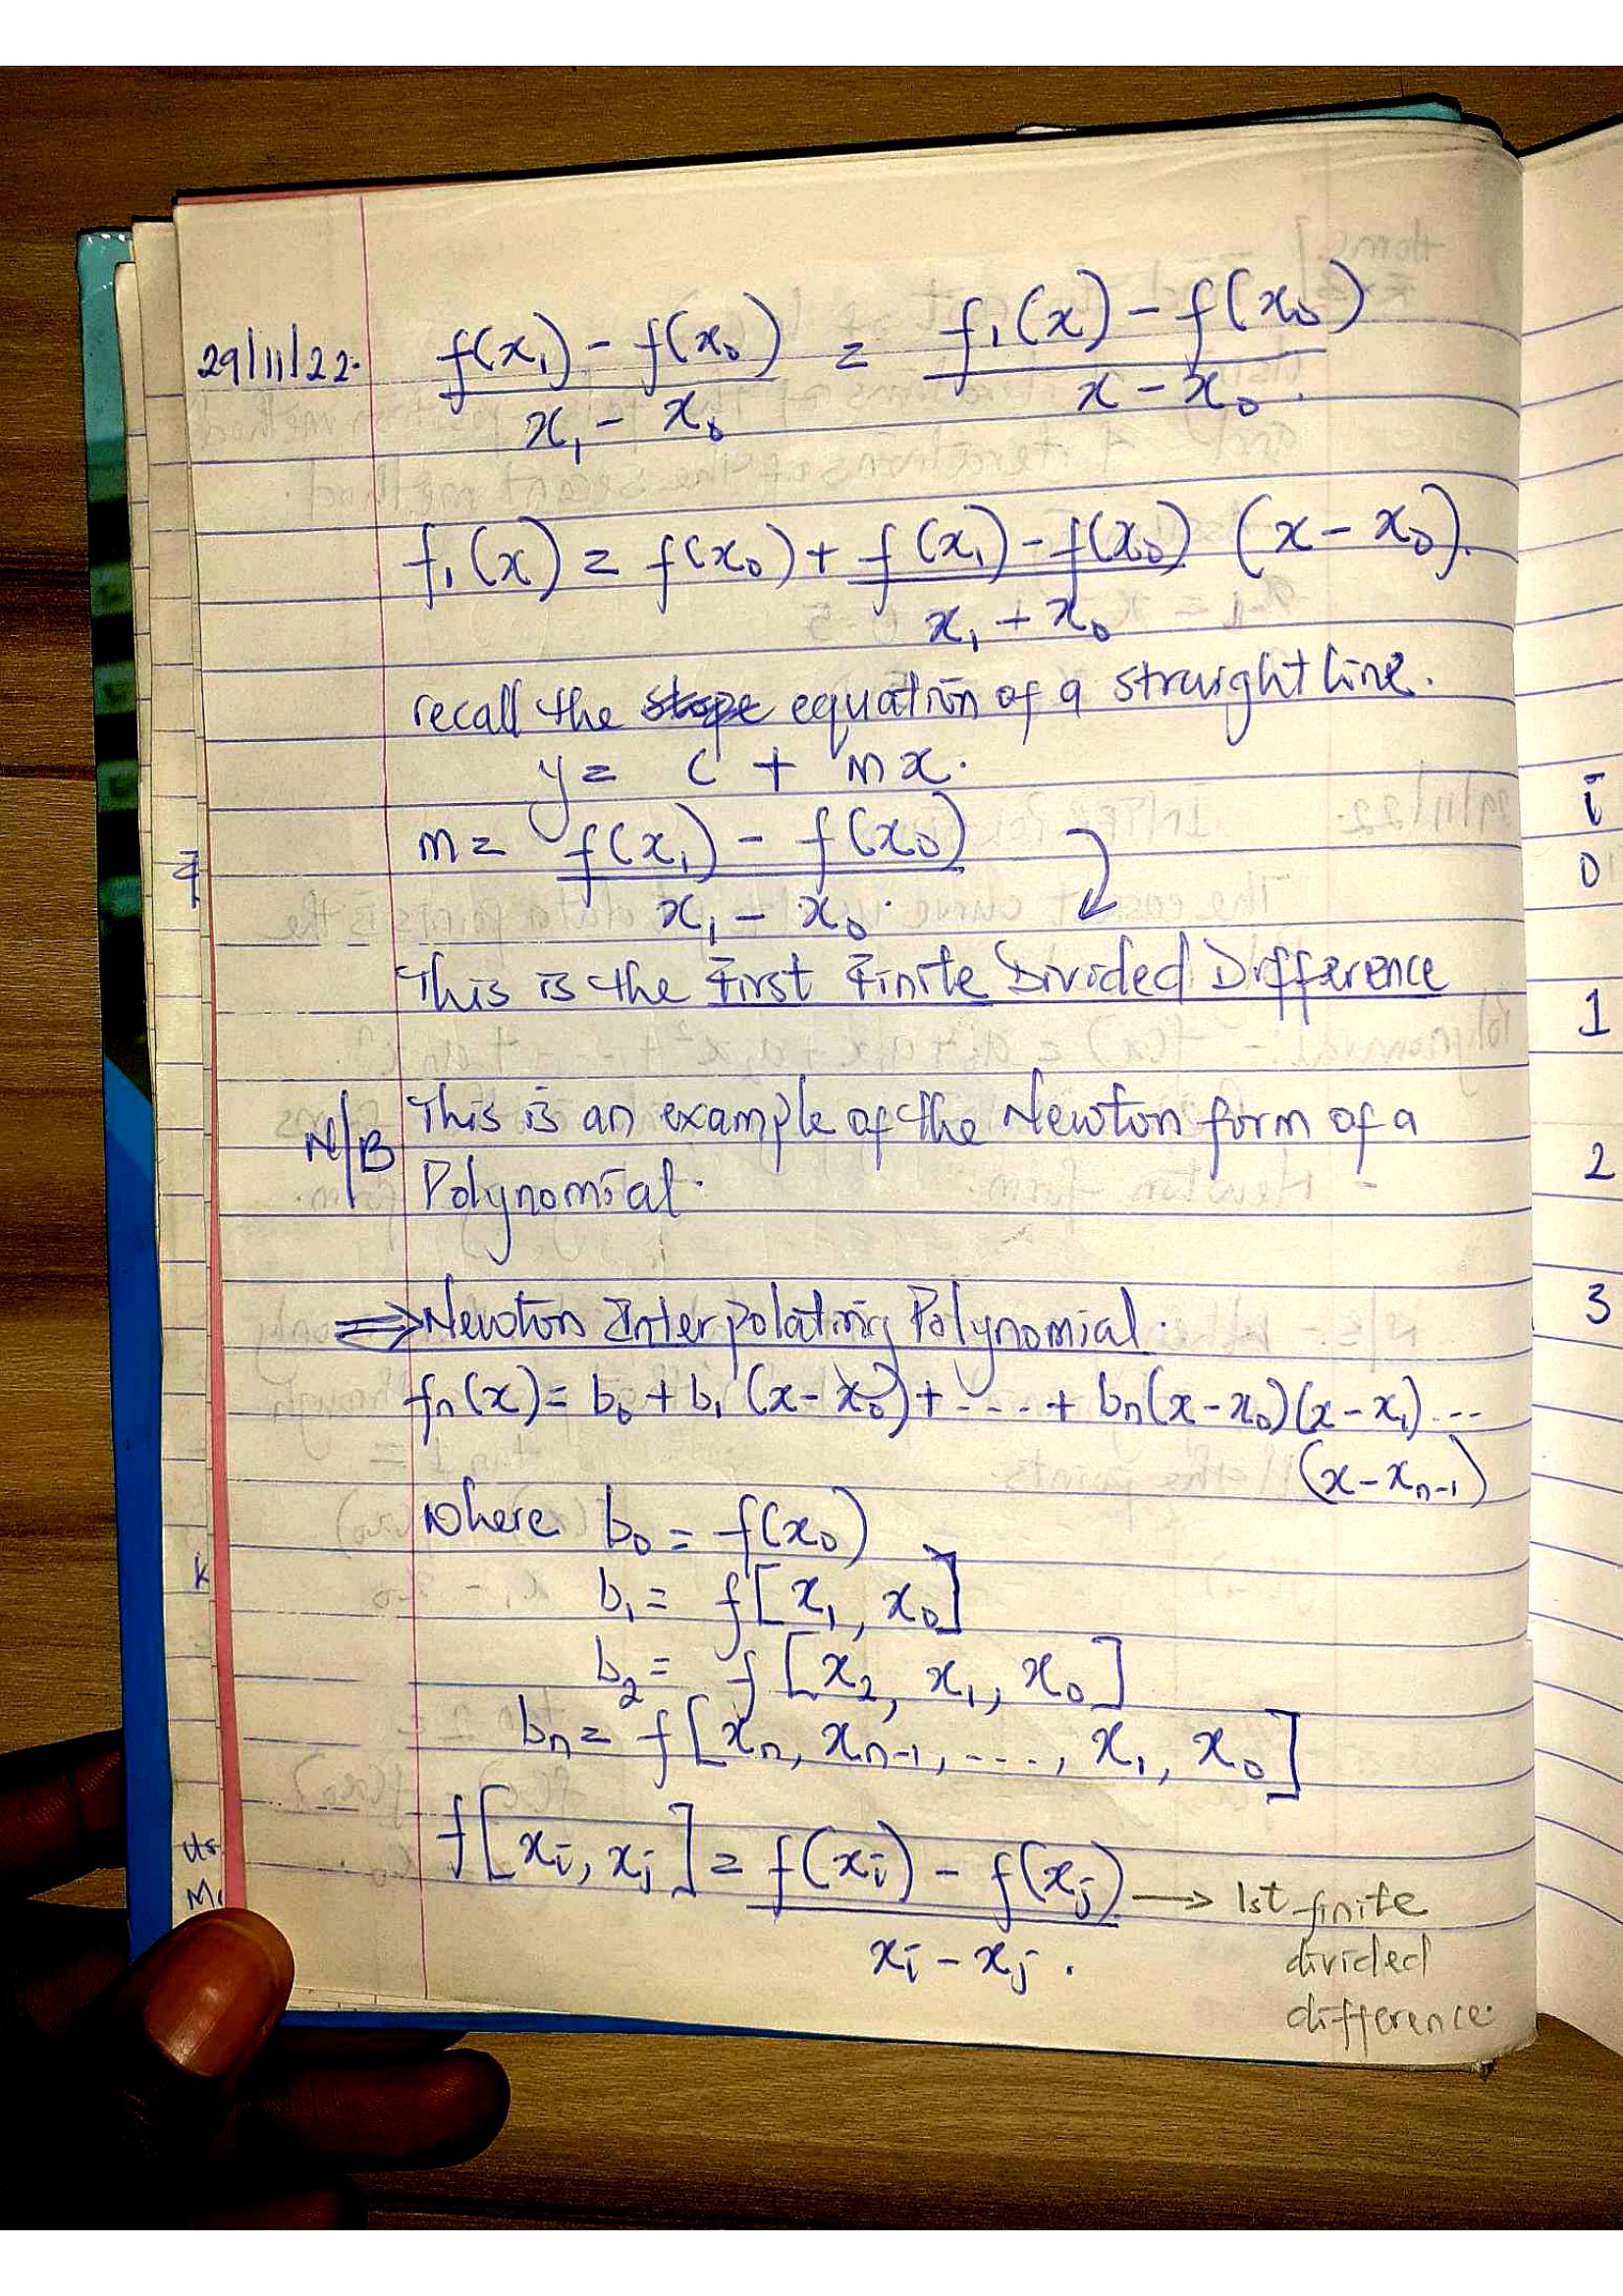 29/11/22. f(x₁) - f(x₀) = f₁(x) - f(x₀)
x₁ - x₀ x - x₀.
f₁(x) = f(x₀) + f(x₁) - f(x₀) (x - x₀).
x₁ + x₀
recall the ~~slope~~ equation of a straight line.
y = c + mx.
m = f(x₁) - f(x₀)
x₁ - x₀.
This is the First Finite Divided Difference
N/B This is an example of the Newton form of a
Polynomial.
⇒ Newton Interpolating Polynomial.
fn(x) = b₀ + b₁ (x - x₀) + .... + bn(x - x₀)(x - x₁)...
(x - xₙ₋₁)
where b₀ = f(x₀)
b₁ = f[x₁, x₀]
b₂ = f[x₂, x₁, x₀]
bn = f[xₙ, xₙ₋₁, ...., x₁, x₀]
f[xᵢ, xⱼ] = f(xᵢ) - f(xⱼ) → 1st finite
xᵢ - xⱼ. divided
difference.
i
0
1
2
3